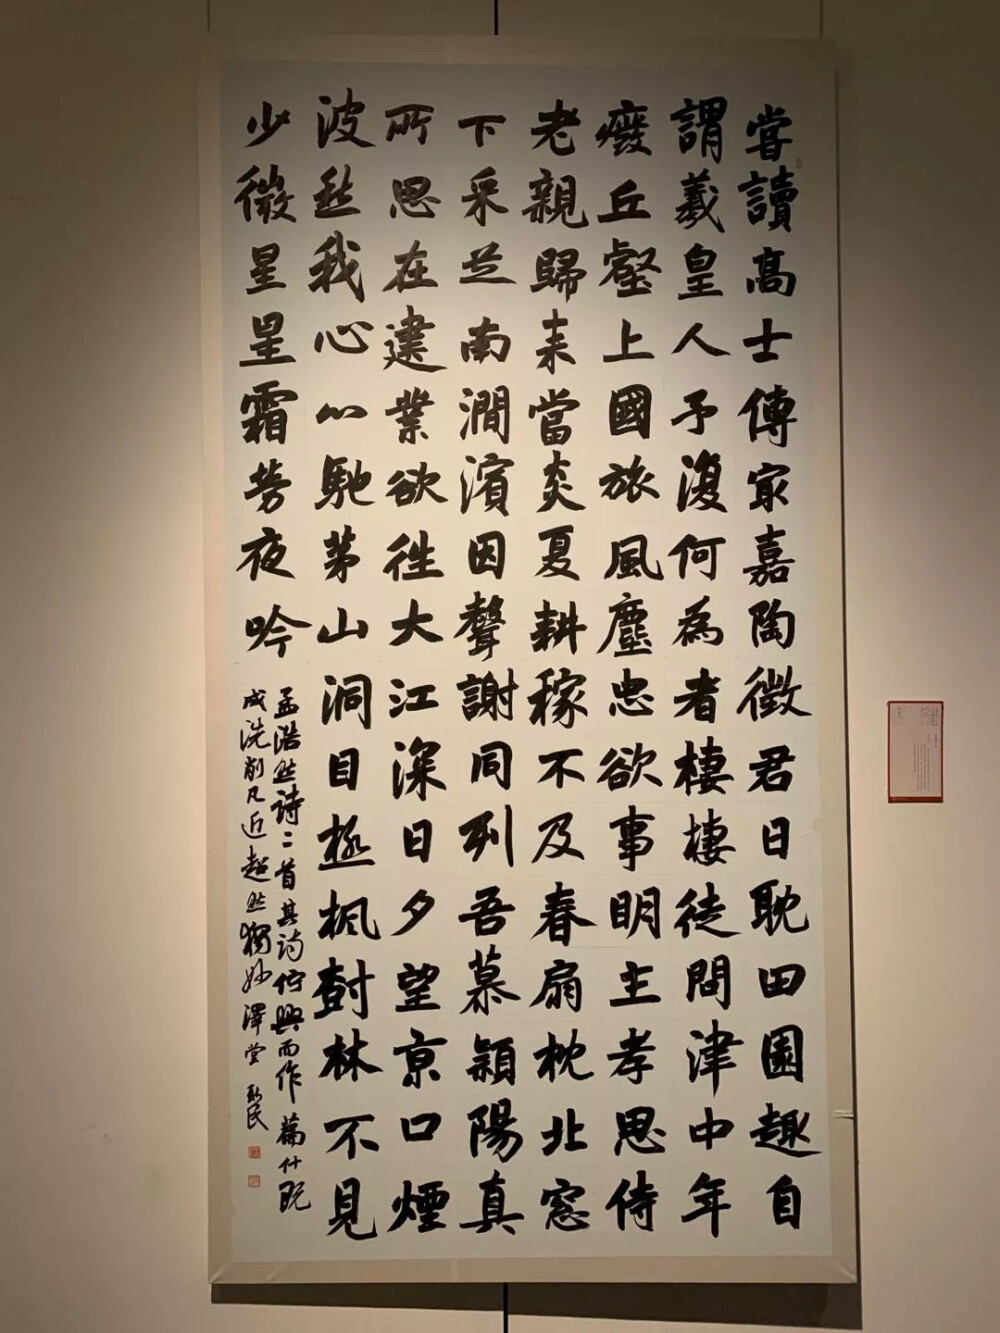 嘗讀高士傳寂嘉陶徵君日耽田園趣自
謂羲皇人予復何為者棲棲徒問津中年
廢丘壑上國旅風塵忠欲事明主孝思侍
老親歸來當炎夏耕稼不及春扇枕北窓
下采芝南澗濱因聲謝同列吾慕潁陽真
所思在建業欲往大江深日夕望京口煙
波愁我心心馳茅山洞目極楓樹林不見
少微星星霜勞夜吟
孟浩然詩二首其詩佇興而作篇什既
成洗削凡近超然獨妙澤堂 民